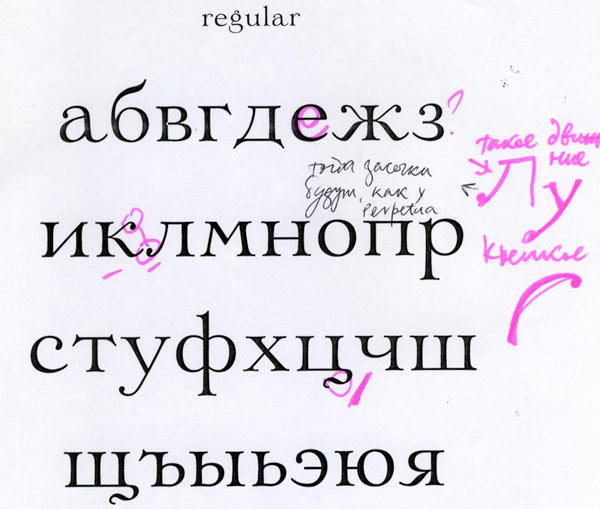 regular
абвгдежз
?
такое движе
ние
тогда засечки
будут, как у
Perpetua
Л у
иклмнопр
стуфхцчш
щъыьэюя